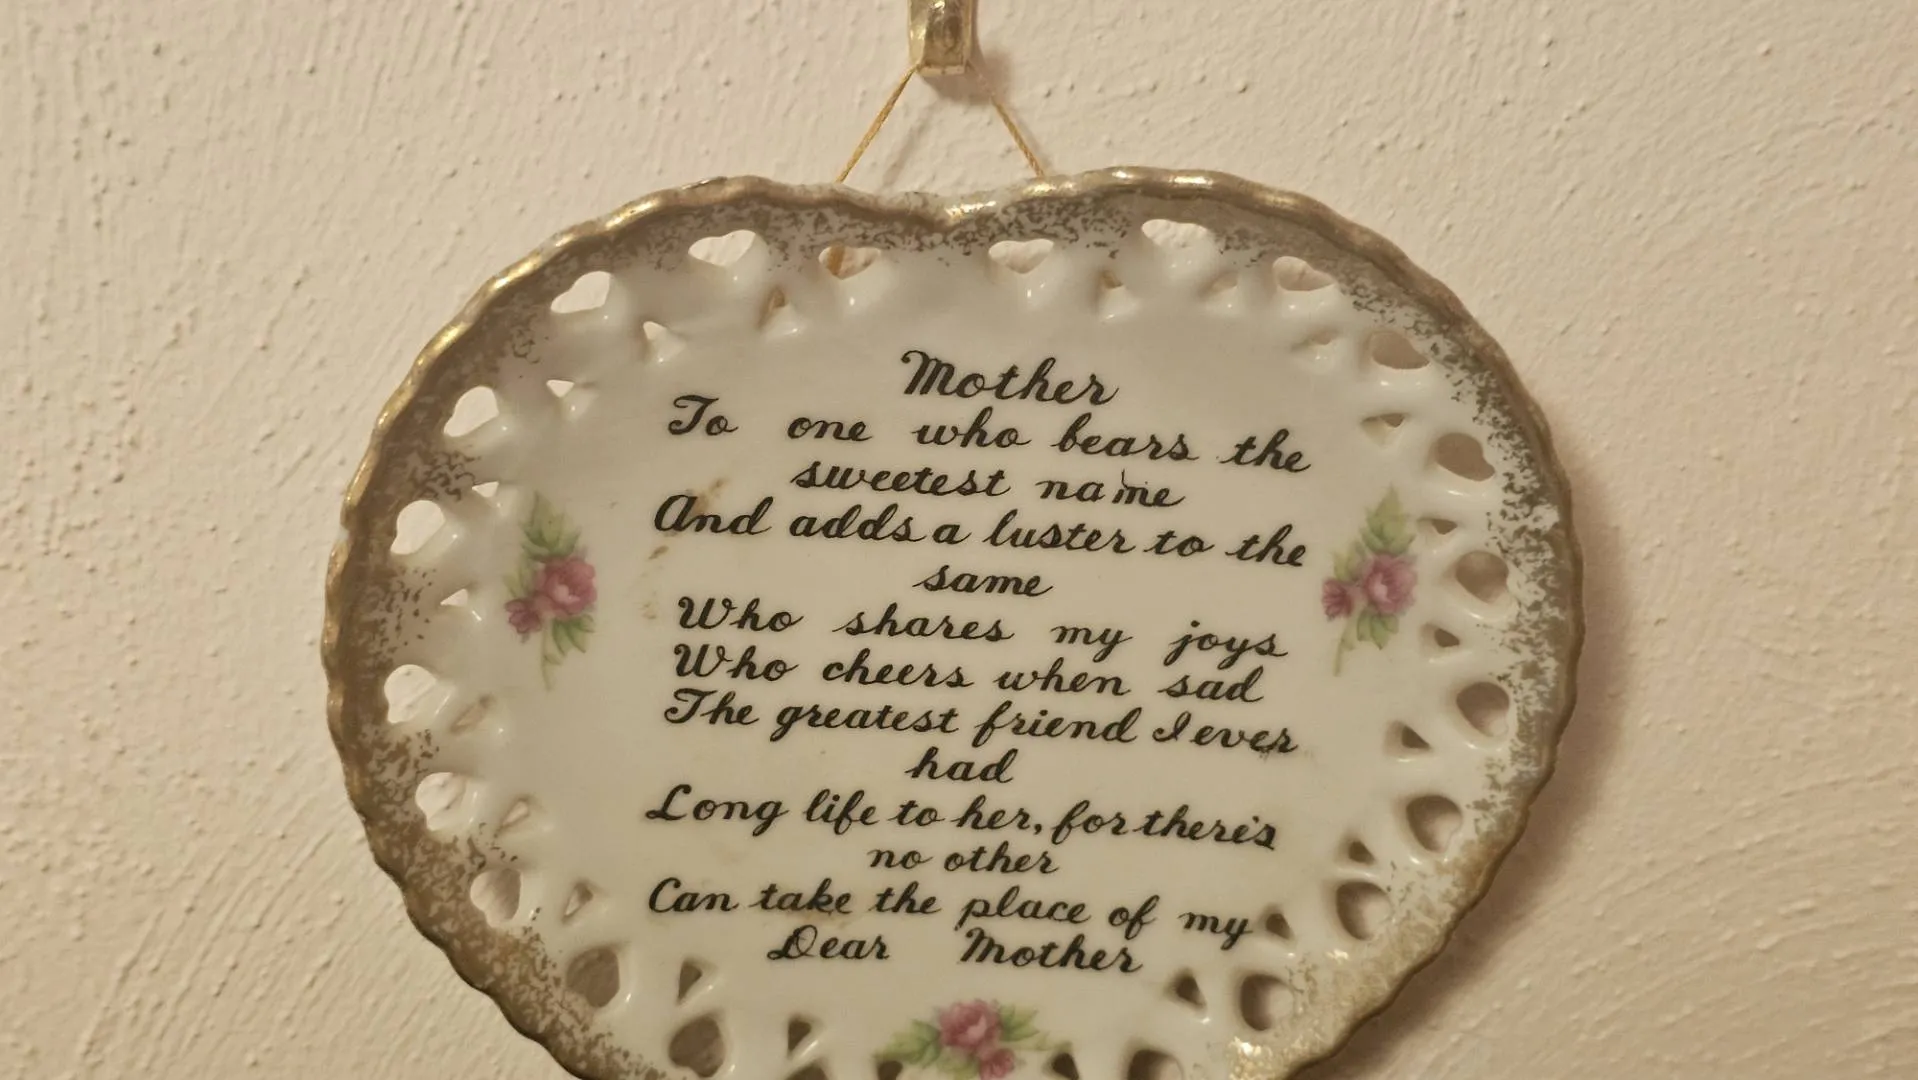 Mother
To one who bears the
sweetest name
And adds a luster to the
same
Who shares my joys
Who cheers when sad
The greatest friend I ever
had
Long life to her, for there's
no other
Can take the place of my
Dear Mother